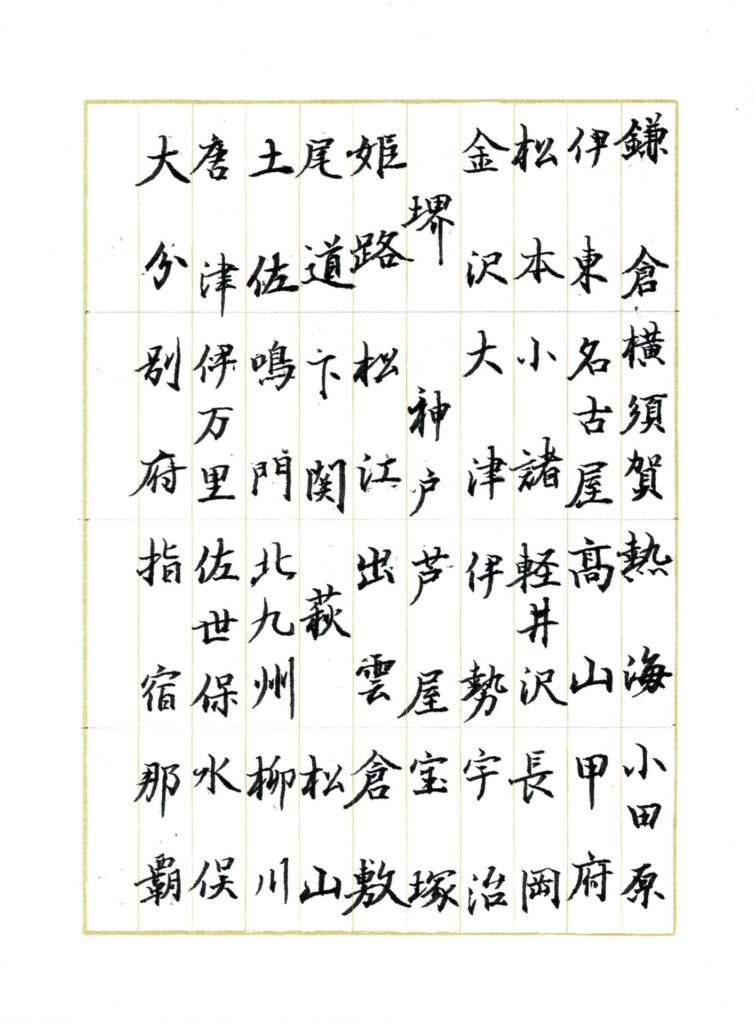 鎌倉 横須賀 熱海 小田原
伊東 名古屋 高山 甲府
松本 小諸 軽井沢 長岡
金沢 大津 伊勢 宇治
堺 神戸 芦屋 宝塚
姫路 松江 出雲 倉敷
尾道 下関 萩 松山
土佐 鳴門 北九州 柳川
唐津 伊万里 佐世保 水俣
大分 別府 指宿 那覇